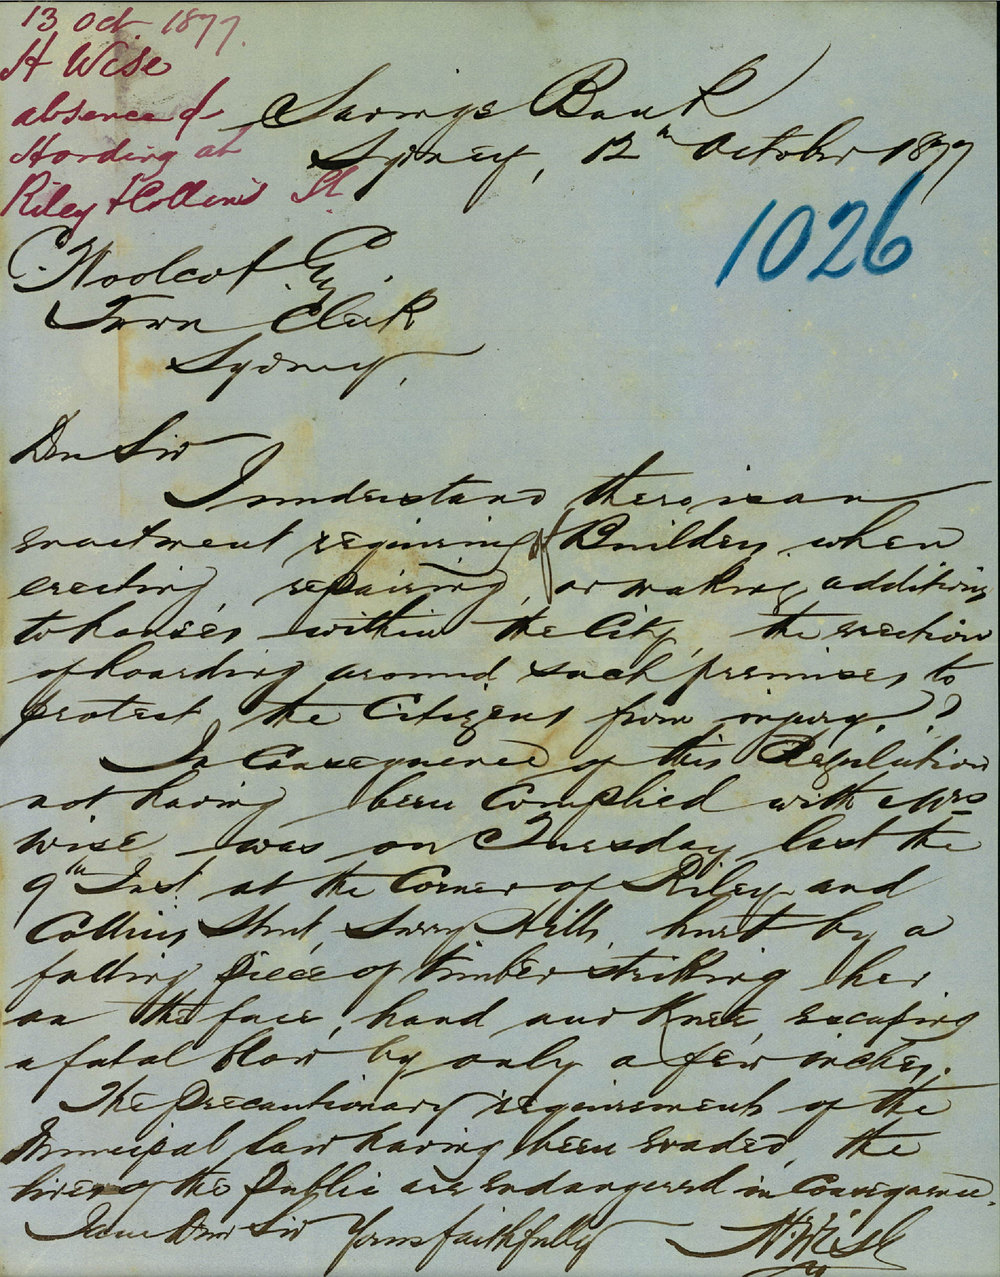 13 Oct 1877.
H Wise
absence of
Hording at
Riley & Collins St
Savings Bank
Sydney, 12th October 1877
1026
C. Woolcot Esq.
Town Clerk
Sydney,
Dear Sir
I understand there is an
enactment requiring of Builders, when
erecting, repairing, or making additions
to houses within the City, the erection
of hoarding around such premises, to
protect the Citizens from injury.?
In Consequence of this Regulation
not having been Complied with Mrs
Wise was on Tuesday last the
9th Inst at the Corner of Riley and
Collins Street, Surry Hills, hurt by a
falling piece of timber striking her
on the face, hand and Knee, escaping
a fatal blow by only a few inches.
The precautionary requirements of the
Municipal law having been evaded, the
lives of the Public are endangered in Consequence.
I am Dear Sir Yours faithfully
H. Wise